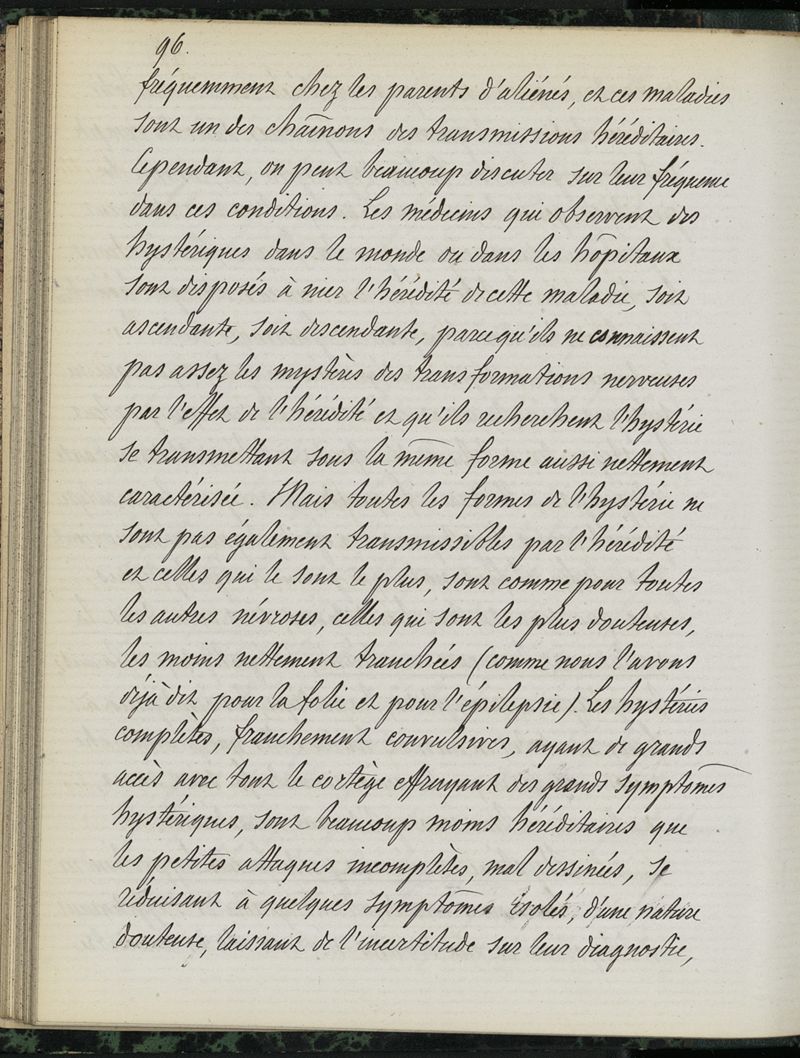 96.
fréquemment chez les parents d'aliénés, et ces maladies
sont un des chaînons des transmissions héréditaires.
Cependant, on peut beaucoup discuter sur leur fréquence
dans ces conditions. Les médecins qui observent des
hystériques dans le monde ou dans les hôpitaux
sont disposés à nier l'hérédité de cette maladie, soit
ascendante, soit descendante, parce qu'ils ne connaissent
pas assez les mystères des transformations nerveuses
par l'effet de l'hérédité et qu'ils recherchent l'hystérie
se transmettant sous la même forme aussi nettement
caractérisée. Mais toutes les formes de l'hystérie ne
sont pas également transmissibles par l'hérédité
et celles qui le sont le plus, sont comme pour toutes
les autres névroses, celles qui sont les plus douteuses,
les moins nettement tranchées (comme nous l'avons
déjà dit pour la folie et pour l'épilepsie). Les hystéries
complètes, franchement convulsives, ayant de grands
accès avec tout le cortège effrayant des grands symptômes
hystériques, sont beaucoup moins héréditaires que
les petites attaques incomplètes, mal dessinées, se
réduisant à quelques symptômes isolés, d'une nature
douteuse, laissant de l'incertitude sur leur diagnostic,